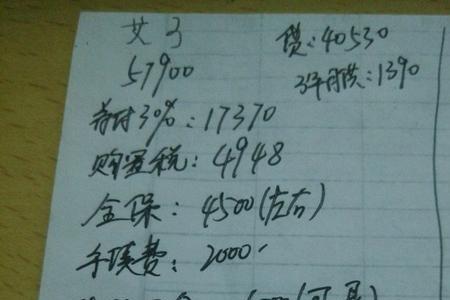 艾 3
57900
首付30%：17370
购置税：4948
全保：4500(左右)
手续费：2000
贷：40530
3年月供：1390